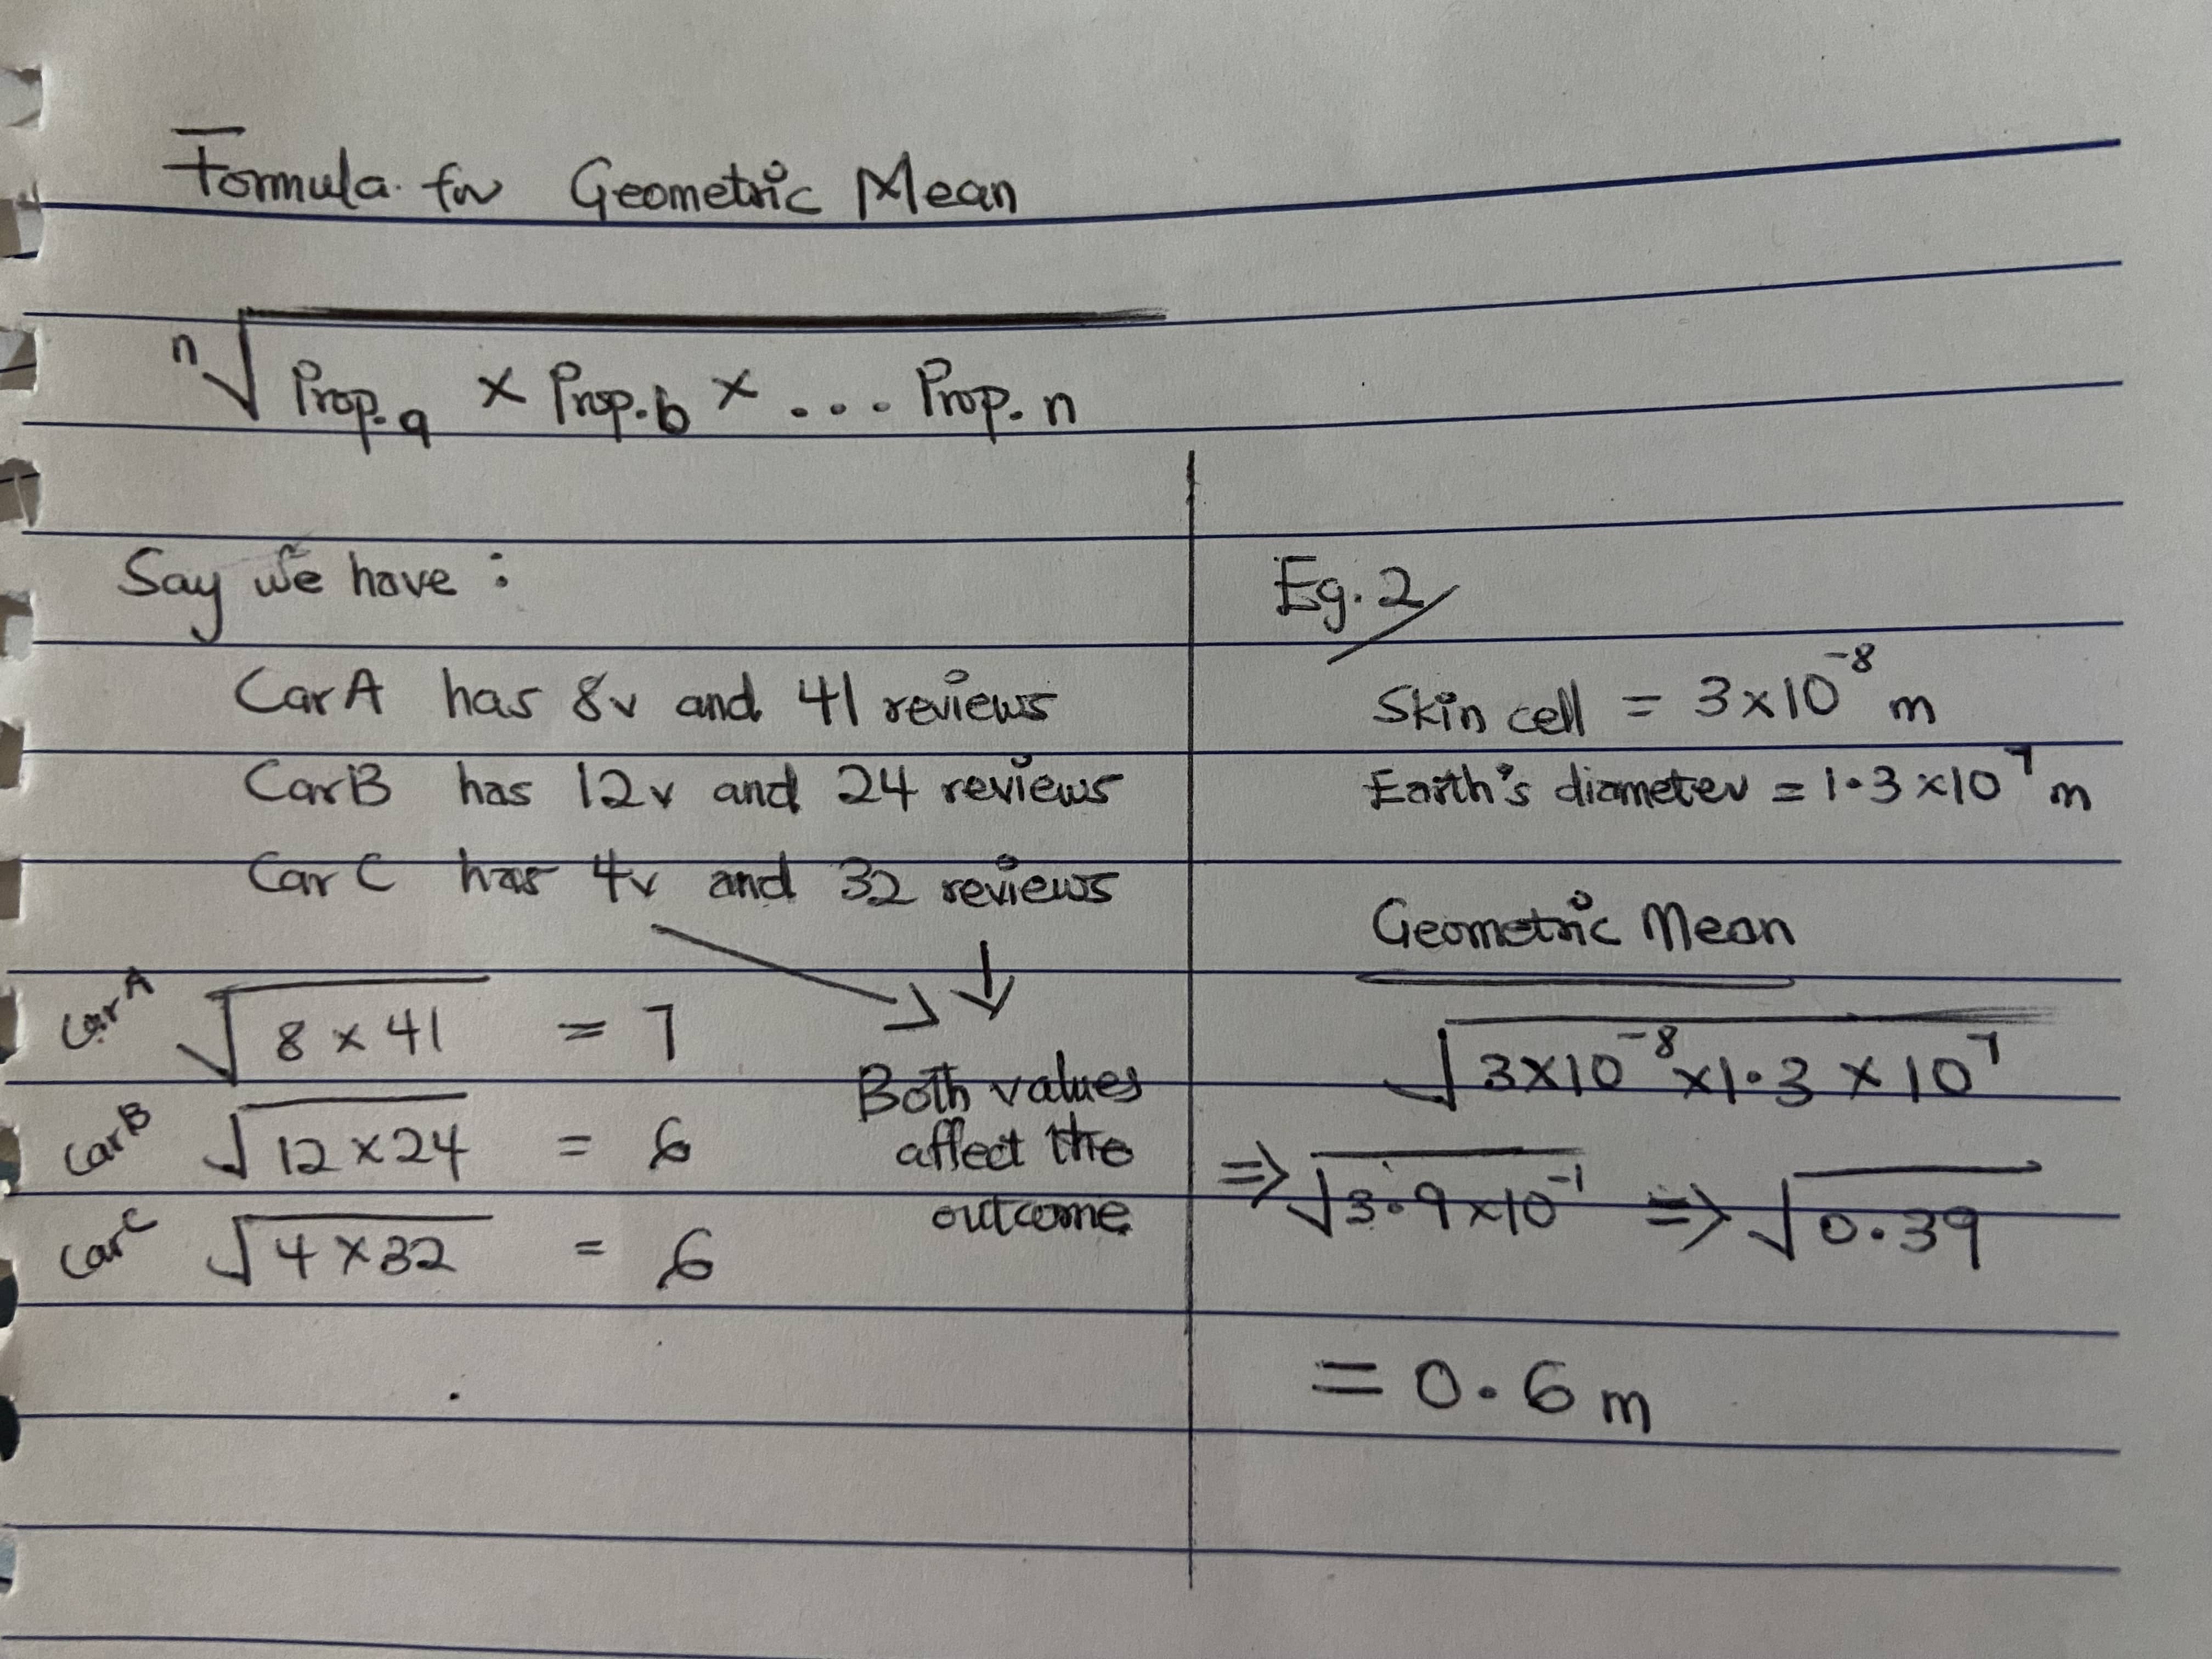 Formula for Geometric Mean
ⁿ√Prop.a × Prop.b × ... Prop.n
Say we have :
Car A has 8v and 41 reviews
Car B has 12v and 24 reviews
Car C has 4v and 32 reviews
Car A √8 × 41 = 7
Car B √12 × 24 = 6
Car C √4 × 32 = 6
Both values
affect the
outcome
Eg. 2
Skin cell = 3×10⁻⁸ m
Earth's diameter = 1.3×10⁷ m
Geometric Mean
√3×10⁻⁸ × 1.3 × 10⁷
⇒ √3.9×10⁻¹ ⇒ √0.39
= 0.6 m